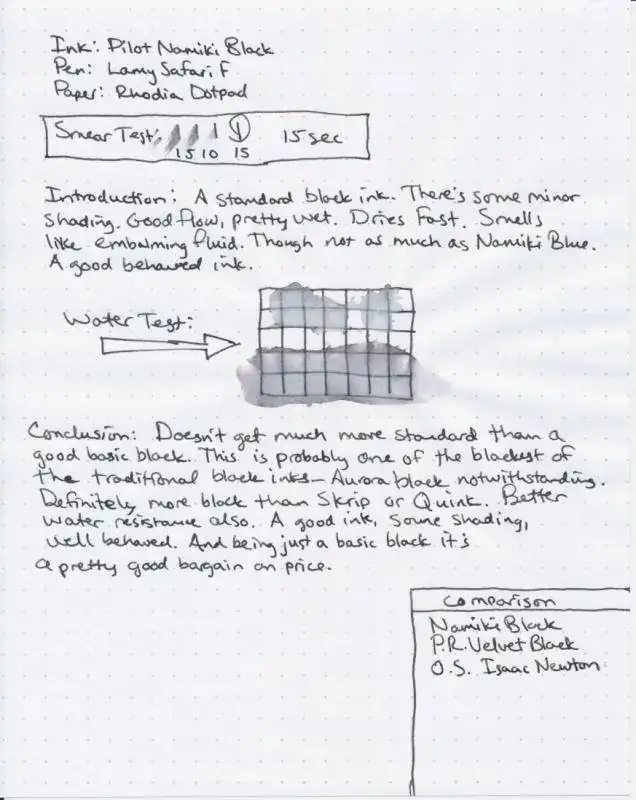 Ink: Pilot Namiki Black
Pen: Lamy Safari F
Paper: Rhodia Dotpad
Smear Test: 15 sec
1 5 10 15
Introduction: A standard black ink. There's some minor
shading. Good flow, pretty wet. Dries fast. Smells
like embalming fluid. Though not as much as Namiki Blue.
A good behaved ink.
Water Test:
Conclusion: Doesn't get much more standard than a
good basic black. This is probably one of the blackest of
the traditional black inks - Aurora black notwithstanding.
Definitely more black than Skrip or Quink. Better
water resistance also. A good ink, some shading,
well behaved. And being just a basic black it's
a pretty good bargain on price.
Comparison
Namiki Black
P.R. Velvet Black
O.S. Isaac Newton